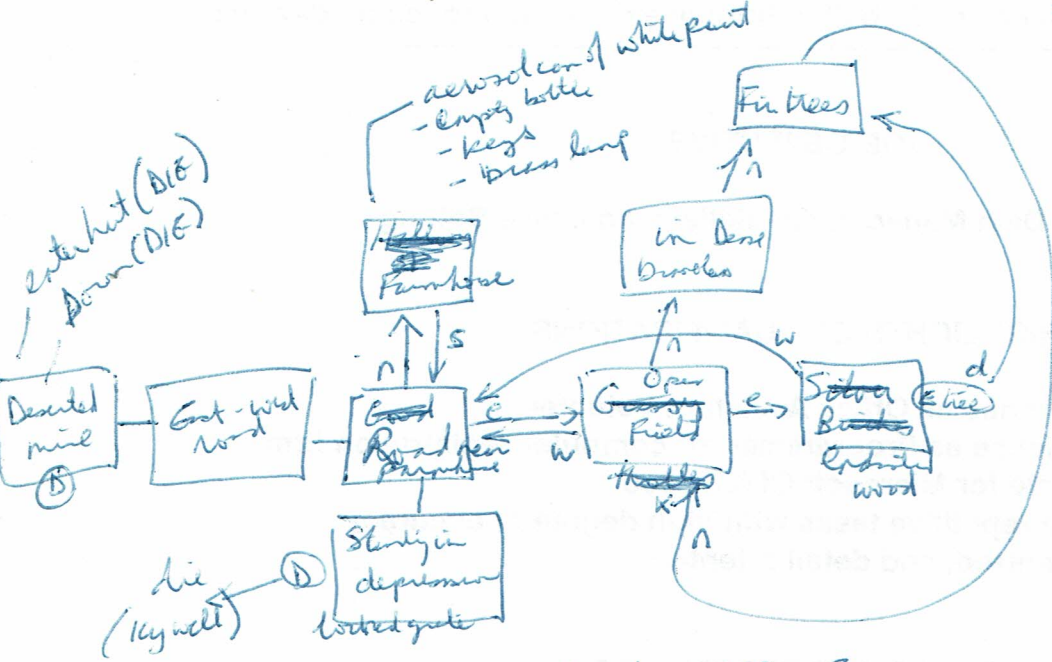 aerosol can of white paint
- empty bottle
- keys
- brass lamp
Fir trees
enter hut (DIE)
Down (DIE)
Farmhouse
n
s
in Dense
n
n
w
d
Deserted
mine
D
East-west
road
Road near
farmhouse
e
w
Open
Grassy
Field
e
Silver
Birches
wood
tree
n
Standing in
depression
locked grate
D
die
(Icy well)